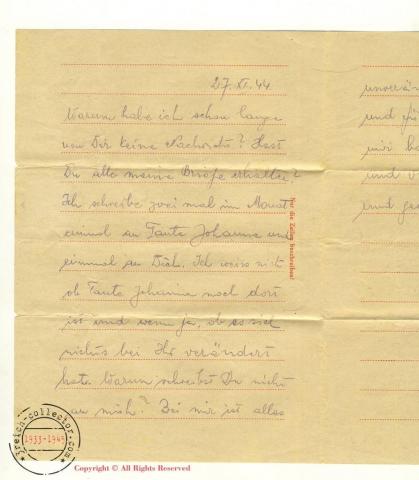 27.XI.44
Warum habe ich schon lange
von Dir keine Nachricht? Hast
Du alle meine Briefe erhalten?
Ich schreibe zwei mal im Monat
einmal an Tante Johanna und
einmal an Dich. Ich weiss nicht
ob Tante Johanna noch dort
ist und wenn ja, ob es sich
nichts bei Ihr verändert
hate. Warum schreibst Du nicht
an mich? Bei mir ist alles
unverän
und
mir
und
und
Nur die Zeilen beschreiben!
3reich-collector.com
1933-1945
Copyright © All Rights Reserved